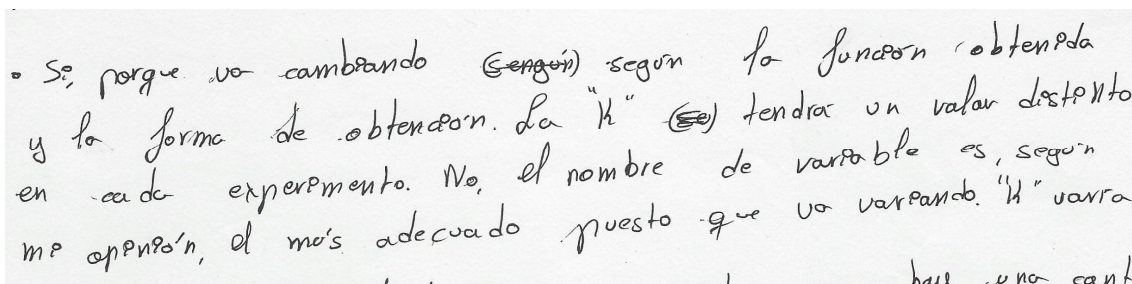 • Sí, porque va cambiando (sengún) según la función obtenida
y la forma de obtención. La "K" (se) tendrá un valor distinto
en cada experimento. No, el nombre de variable es, según
mi opinión, el más adecuado puesto que va variando. "K" varía
hay una cant